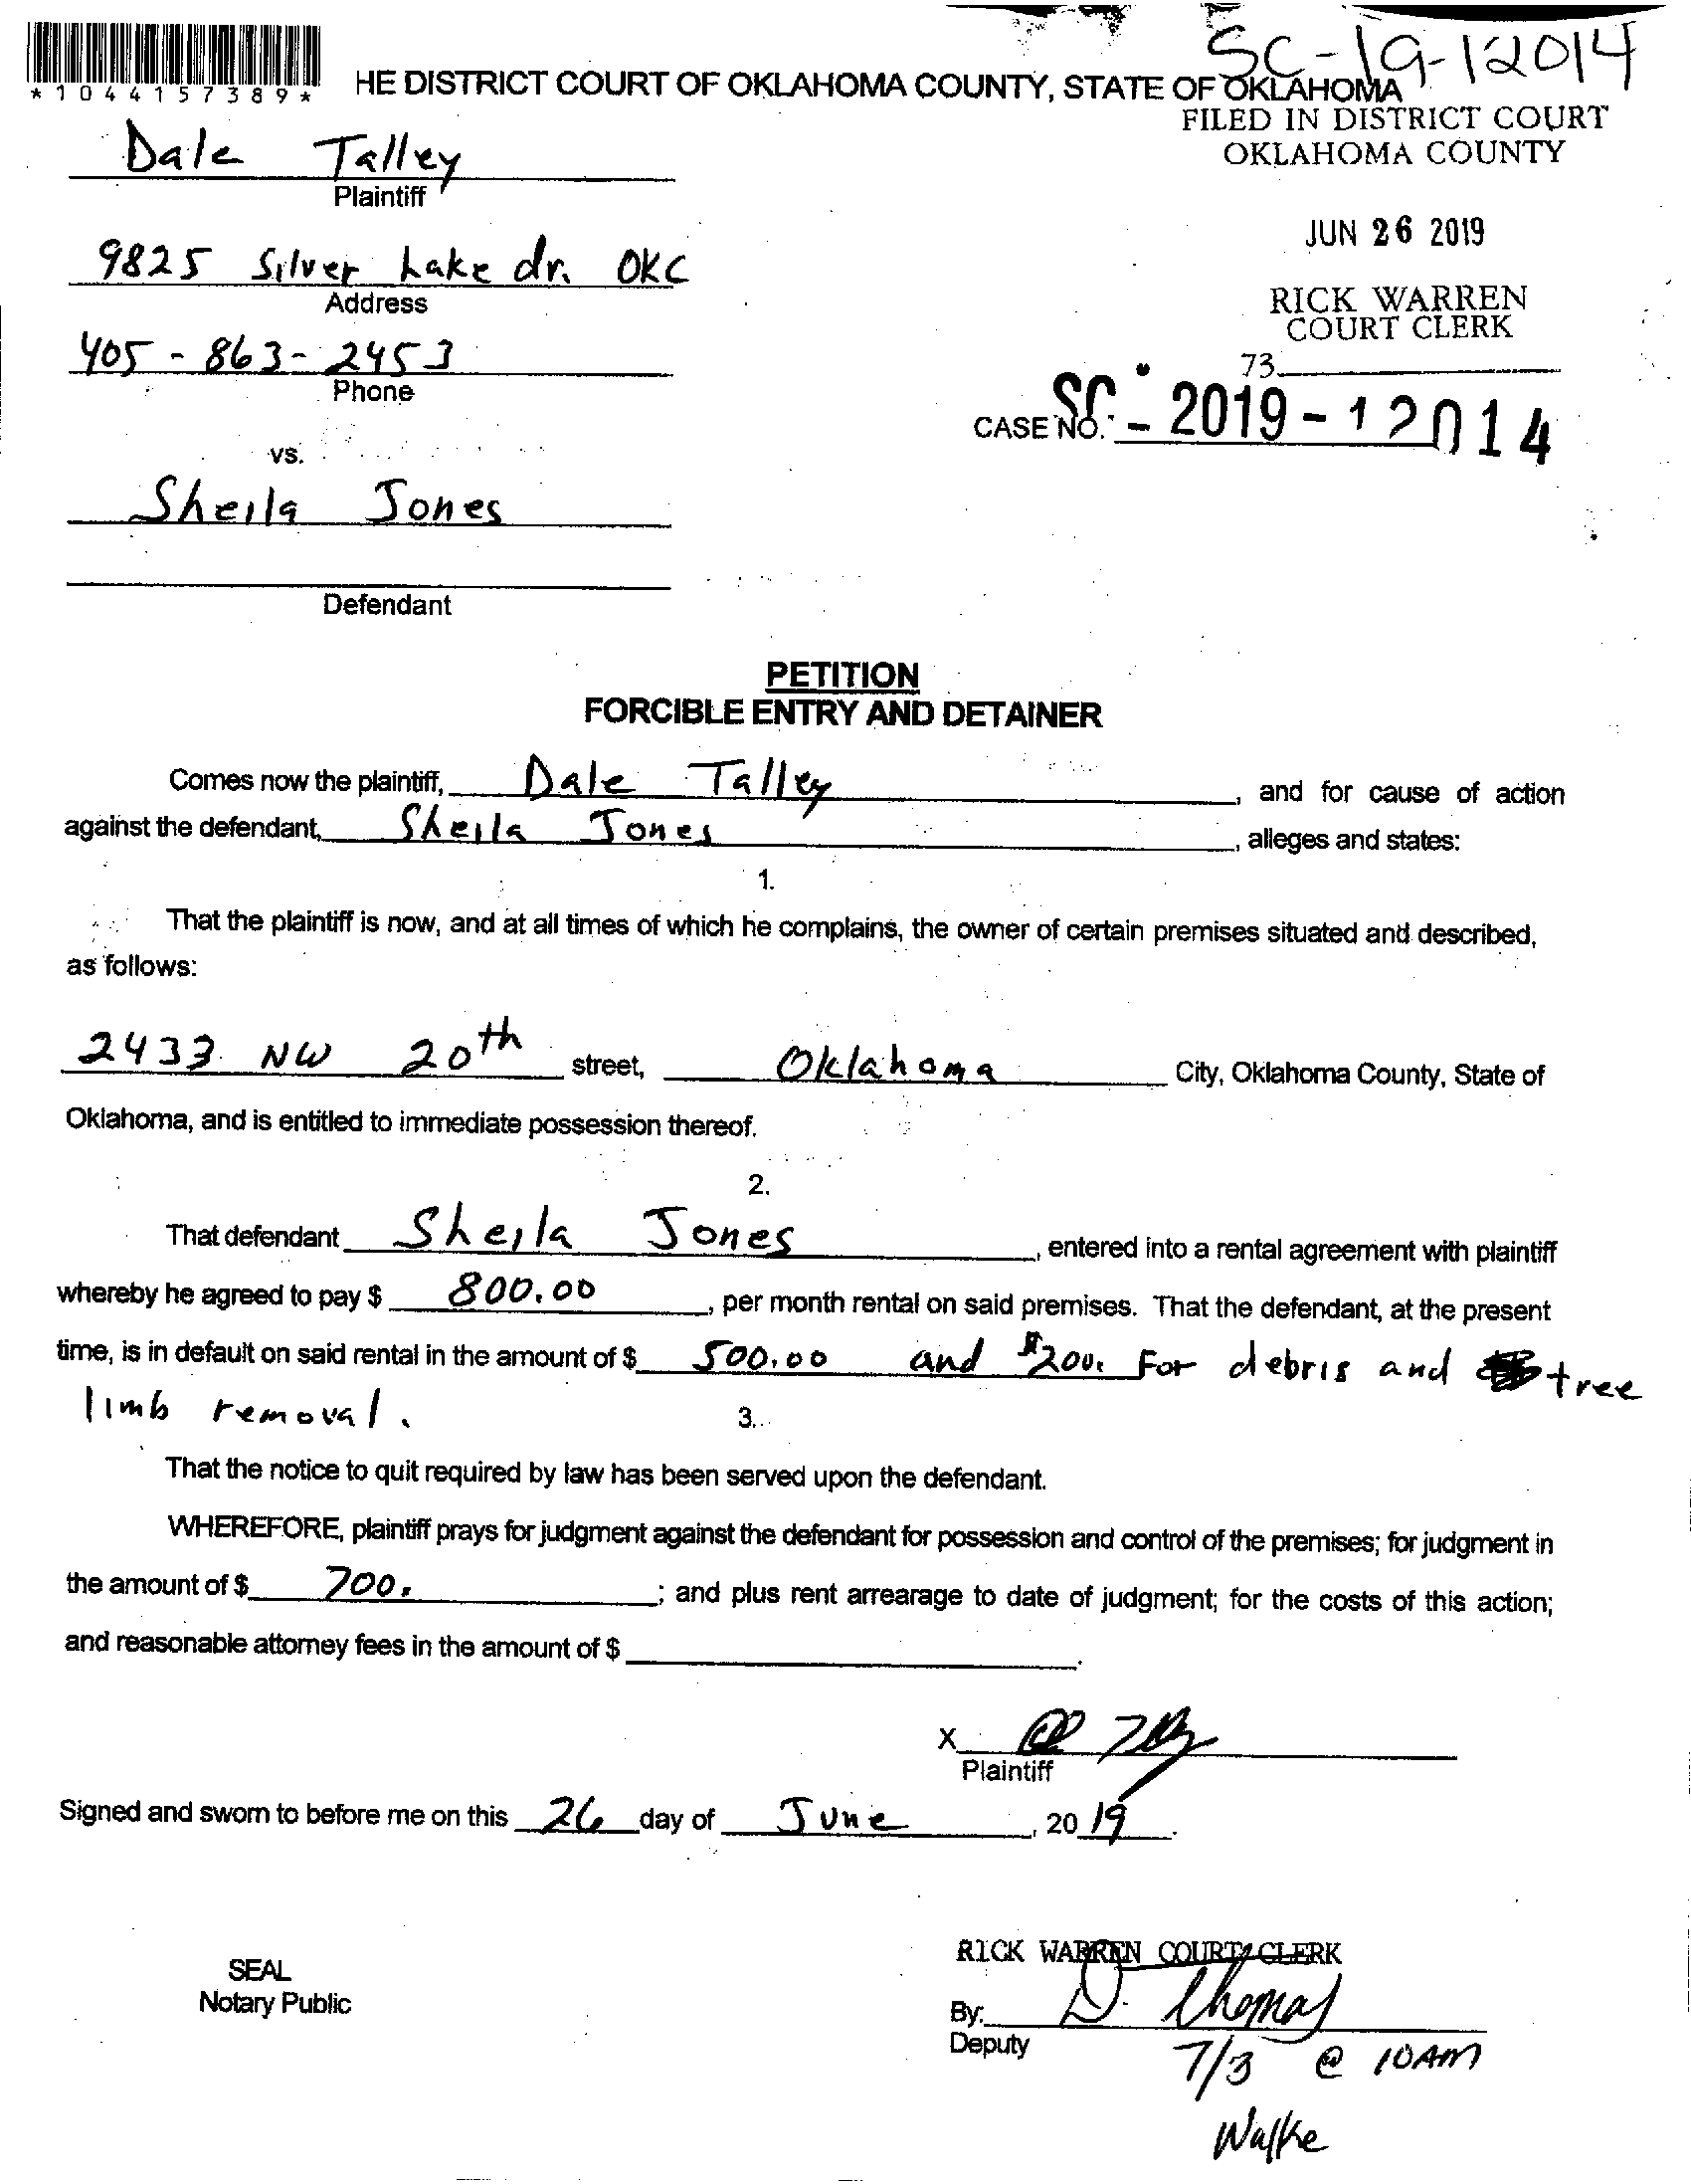 SC-19-12014
*1044157389*
HE DISTRICT COURT OF OKLAHOMA COUNTY, STATE OF OKLAHOMA
FILED IN DISTRICT COURT
OKLAHOMA COUNTY
Dale Talley
Plaintiff
JUN 26 2019
9825 Silver Lake dr. OKC
Address
RICK WARREN
COURT CLERK
405-863-2453
Phone
73
CASE NO. SC - 2019 - 12014
vs.
Sheila Jones
Defendant
PETITION
FORCIBLE ENTRY AND DETAINER
Comes now the plaintiff, Dale Talley, and for cause of action
against the defendant, Sheila Jones, alleges and states:
1.
That the plaintiff is now, and at all times of which he complains, the owner of certain premises situated and described,
as follows:
2433 NW 20th street, Oklahoma City, Oklahoma County, State of
Oklahoma, and is entitled to immediate possession thereof.
2.
That defendant Sheila Jones, entered into a rental agreement with plaintiff
whereby he agreed to pay $ 800.00, per month rental on said premises. That the defendant, at the present
time, is in default on said rental in the amount of $ 500.00 and $200. For debris and tree
limb removal.
3.
That the notice to quit required by law has been served upon the defendant.
WHEREFORE, plaintiff prays for judgment against the defendant for possession and control of the premises; for judgment in
the amount of $ 700. ; and plus rent arrearage to date of judgment; for the costs of this action;
and reasonable attorney fees in the amount of $ .
X
Plaintiff
Signed and sworn to before me on this 26 day of June, 20 19.
RICK WARREN COURT CLERK
SEAL
Notary Public
By: D. Thomas
Deputy
7/3 @ 10AM
Walke